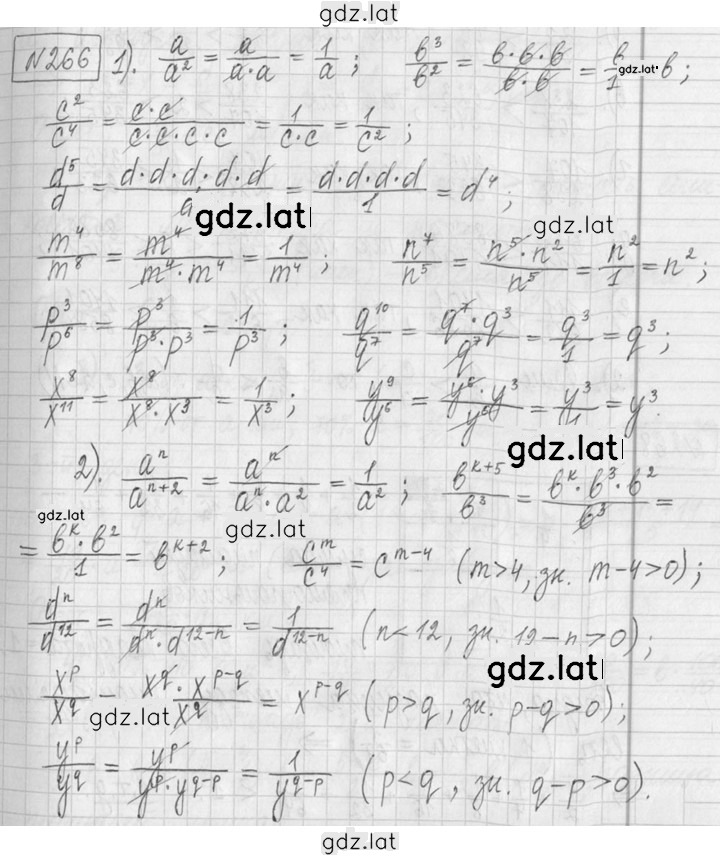 gdz.lat
№266 1). a/a² = a/(a·a) = 1/a ; в³/в² = (в·в·в)/(в·в) = в/1 gdz.lat · в ;
c²/c⁴ = (c·c)/(c·c·c·c) = 1/(c·c) = 1/c² ;
d⁵/d = (d·d·d·d·d)/d = (d·d·d·d)/1 = d⁴ ;
gdz.lat gdz.lat
m⁴/m⁸ = m⁴/(m⁴·m⁴) = 1/m⁴ ; n⁷/n⁵ = (n⁵·n²)/n⁵ = n²/1 = n² ;
p³/p⁶ = p³/(p³·p³) = 1/p³ ; q¹⁰/q⁷ = (q⁷·q³)/q⁷ = q³/1 = q³ ;
x⁸/x¹¹ = x⁸/(x⁸·x³) = 1/x³ ; y⁹/y⁶ = (y⁶·y³)/y⁶ = y³/1 = y³.
gdz.lat
2). aⁿ/aⁿ⁺² = aⁿ/(aⁿ·a²) = 1/a² ; в^(k+5)/в³ = (в^k·в³·в²)/в³ =
gdz.lat gdz.lat
= (в^k·в²)/1 = в^(k+2) ; c^m/c⁴ = c^(m-4) (m>4, зн. m-4>0) ;
dⁿ/d¹² = dⁿ/(dⁿ·d^(12-n)) = 1/d^(12-n) (n<12, зн. 12-n>0) ;
gdz.lat
x^p/x^q = (x^q·x^(p-q))/x^q = x^(p-q) (p>q, зн. p-q>0) ;
gdz.lat
y^p/y^q = y^p/(y^p·y^(q-p)) = 1/y^(q-p) (p<q, зн. q-p>0).
gdz.lat